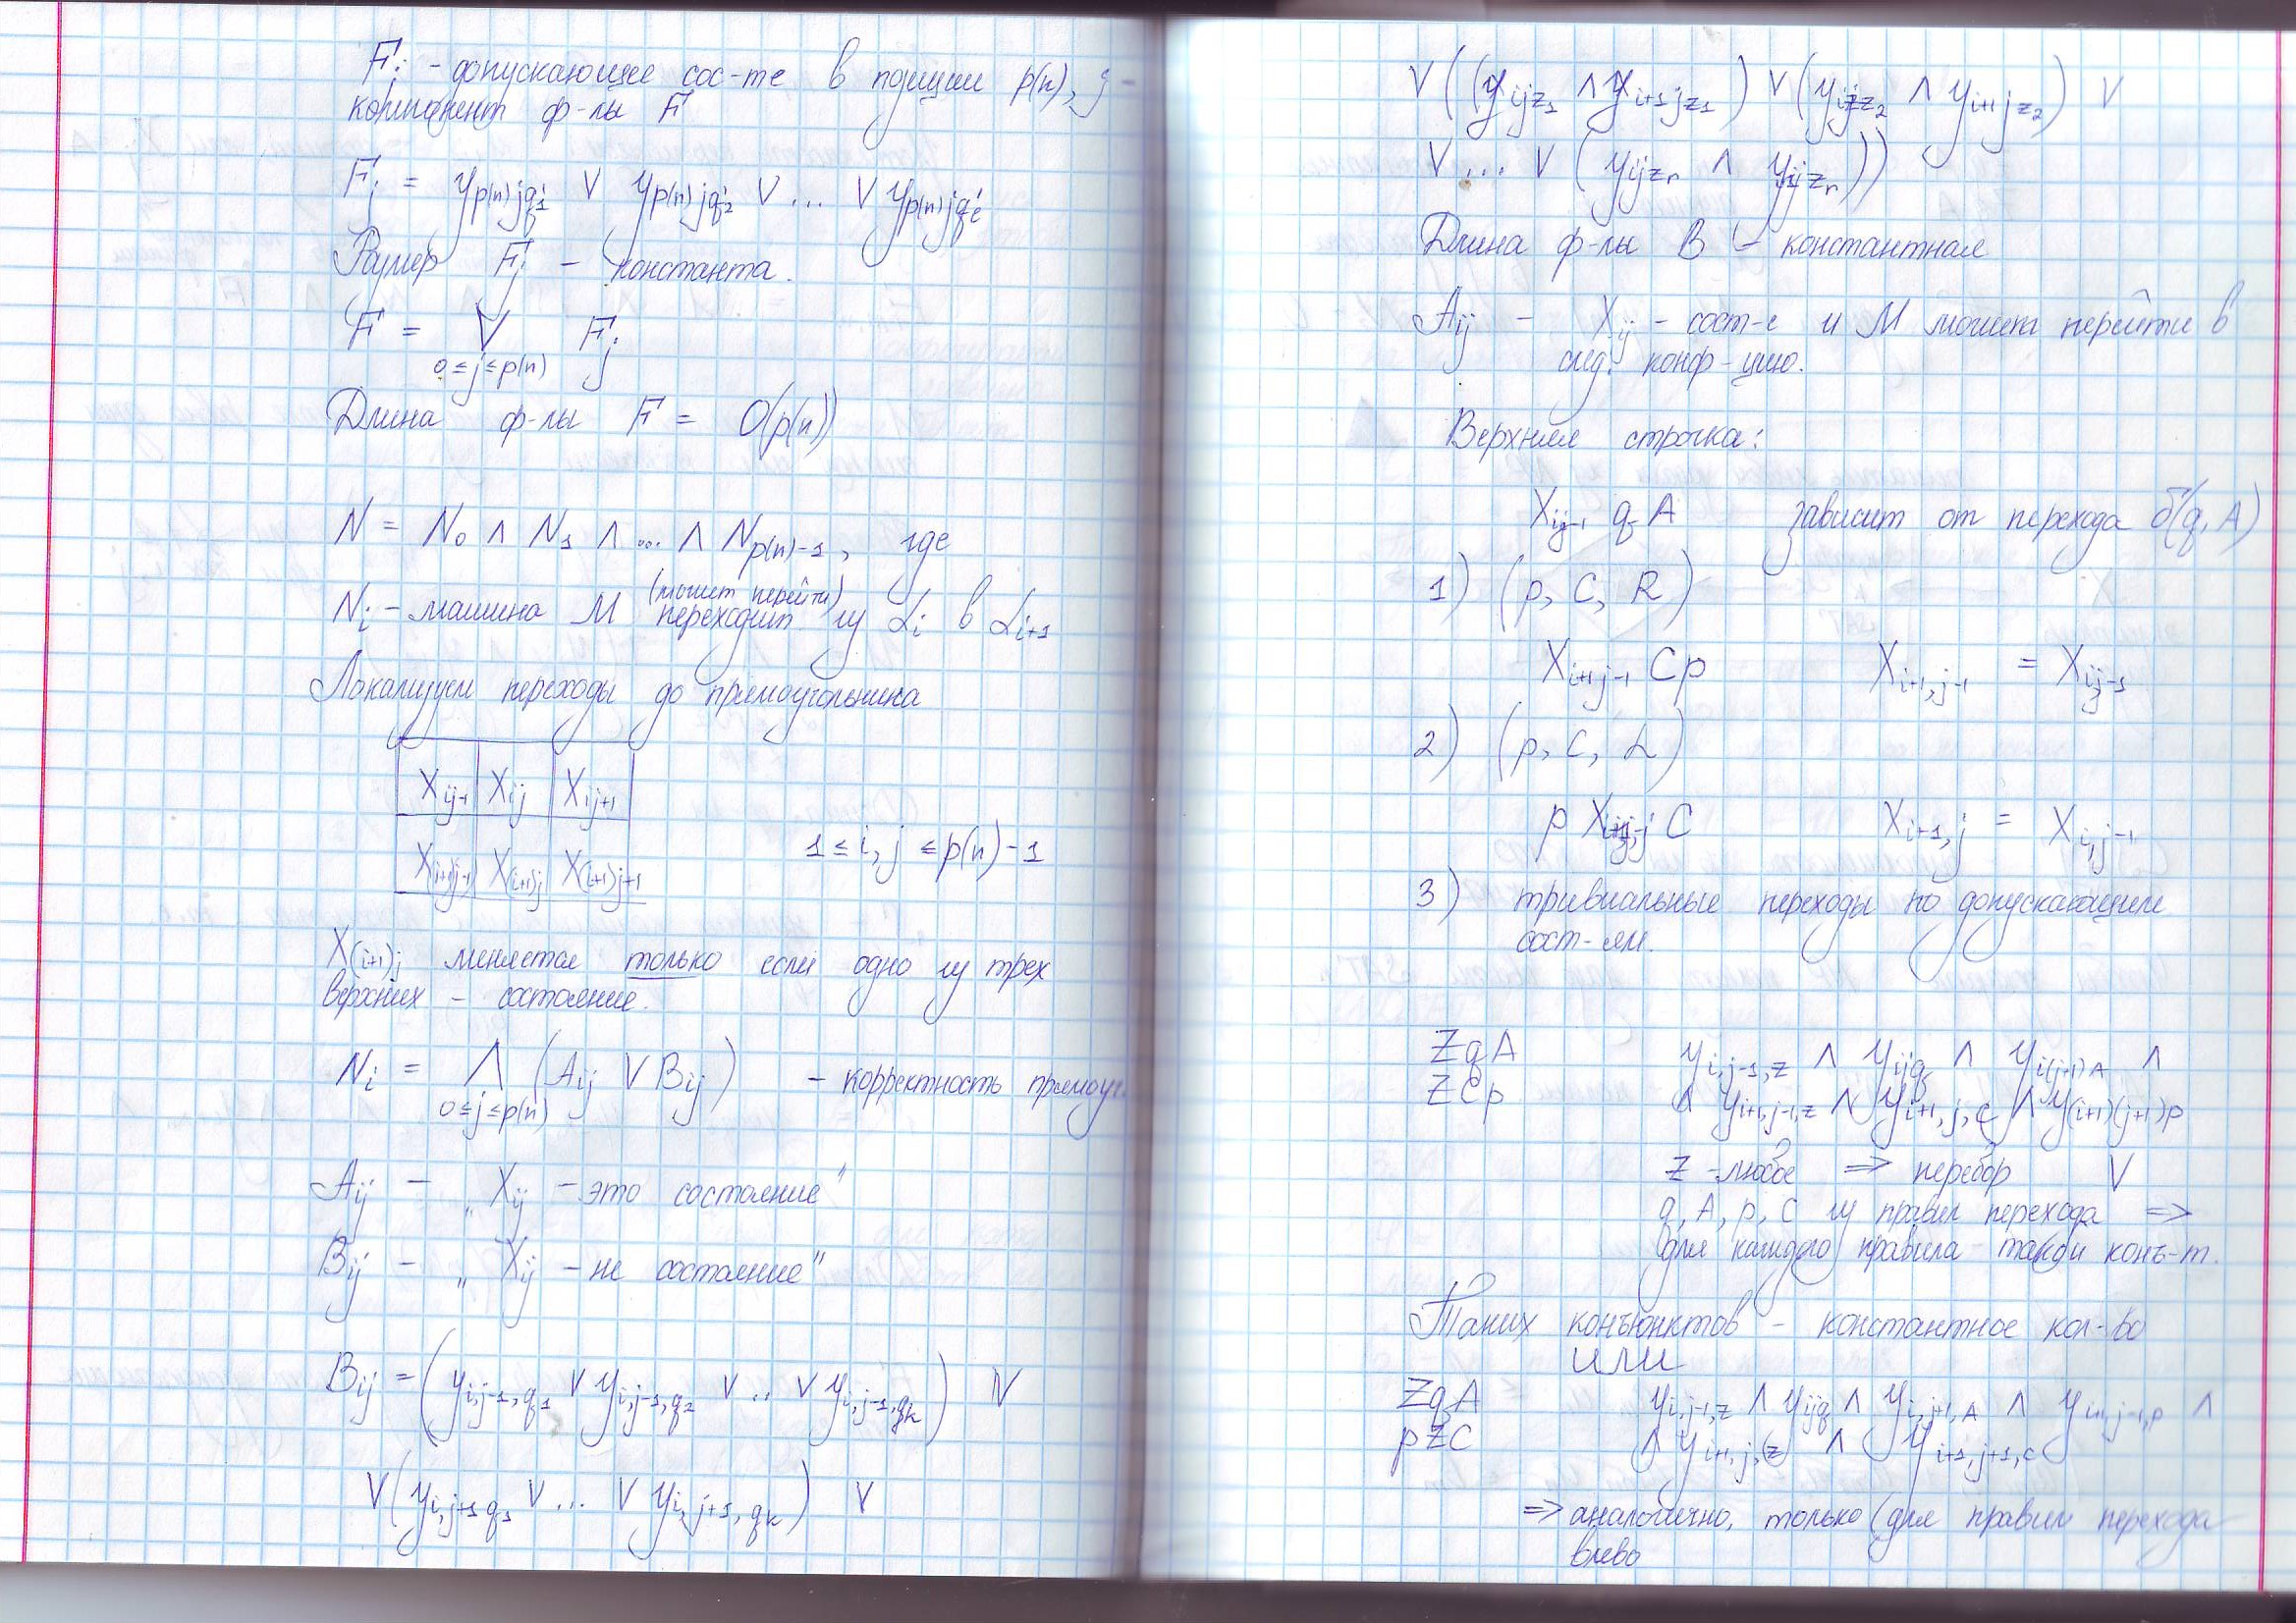 Fj - допускающее сос-те в позиции p(n), j -
компонент ф-лы F
Fj = y p(n)jq'1 ∨ y p(n)jq'2 ∨ ... ∨ y p(n)jq'e
Размер Fj - константа.
F = ∨ Fj
0≤j≤p(n)
Длина ф-лы F = O(p(n))
N = N0 ∧ N1 ∧ ... ∧ Np(n)-1, где
(может перейти)
Ni - машина M переходит из αi в αi+1
Локализуем переходы до прямоугольника
Xij-1 Xij Xij+1
X(i+1)j-1 X(i+1)j X(i+1)j+1
1 ≤ i, j ≤ p(n)-1
X(i+1)j меняется только если одно из трех
верхних - состояние.
Ni = ∧ (Aij ∨ Bij) - корректность прямоуг.
0≤j≤p(n)
Aij - „Xij - это состояние"
Bij - „Xij - не состояние"
Bij = (yi,j-1,q1 ∨ yi,j-1,q2 ∨ .. ∨ yi,j-1,qk) ∨
∨ (yi,j+1q1 ∨ ... ∨ yi,j+1,qk) ∨
∨ ((yijz1 ∧ yi+1jz1) ∨ (yijz2 ∧ yi+1jz2) ∨
∨ ... ∨ (yijzr ∧ yijzr))
Длина ф-лы B - константная
Aij - Xij - сост-е и M может перейти в
след. конф-цию.
Верхняя строчка:
Xij-1 q A зависит от перехода δ(q, A)
1) (p, C, R)
Xi+1j-1 C p Xi+1,j-1 = Xij-1
2) (p, C, L)
p Xi+1,j C Xi+1,j = Xi,j-1
3) тривиальные переходы по допускающим
сост-ям.
ZqA yi,j-1,z ∧ yijq ∧ yi(j+1)A ∧
ZCp ∧ yi+1,j-1,z ∧ yi+1,j,c ∧ y(i+1)(j+1)p
z - любое => перебор ∨
q, A, p, C из правил перехода =>
для каждого правила - такой конъ-т.
Таких конъюнктов - константное кол-во
или
ZqA yi,j-1,z ∧ yijq ∧ yi,j+1,A ∧ yi+1,j-1,p ∧
pZC ∧ yi+1,j,z ∧ yi+1,j+1,c
=> аналогично, только для правил перехода
влево